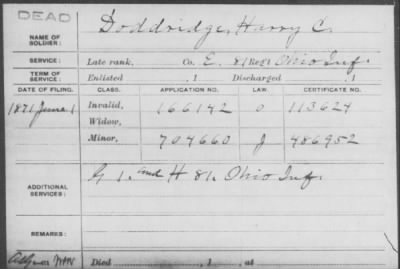 DEAD
NAME OF SOLDIER: Doddridge, Harry C.
SERVICE: Late rank, Co. E, 81 Reg't Ohio Inf.
TERM OF SERVICE: Enlisted , 1 Discharged , 1
DATE OF FILING. CLASS. APPLICATION NO. LAW. CERTIFICATE NO.
1871 June 1 Invalid, 166142 O 113624
Widow,
Minor, 704660 J 486952
ADDITIONAL SERVICES: G 1. and H 81. Ohio Inf.
REMARKS:
Died , 1 , at